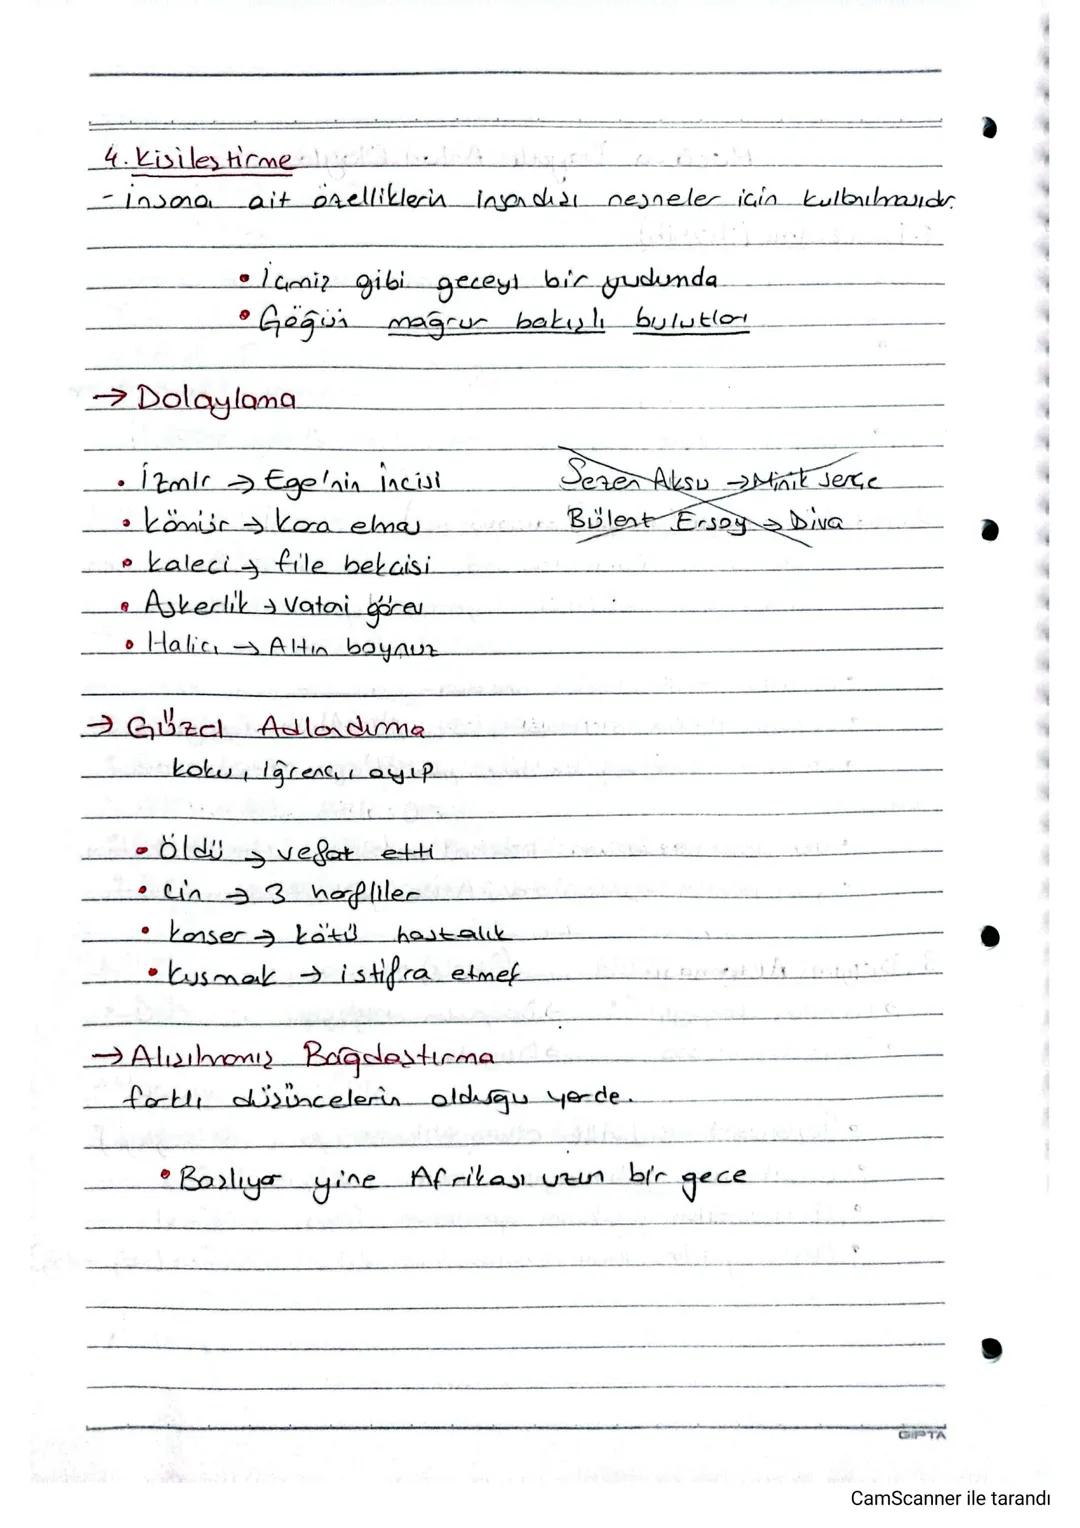 4. Kişileştirme
- insana ait özelliklerin insandışı nesneler için kullanılmasıdır.
• İçmiz gibi geceyi bir yudumda
• Göğün mağrur bakışlı bulutları
→ Dolaylama
• İzmir → Ege'nin İncisi
Sezen Aksu → Minik serçe
• Kömür → Kara elmas
Bülent Ersoy → Diva
• Kaleci → file bekçisi
• Askerlik → Vatani görev
• Haliç → Altın boynuz
→ Güzel Adlandırma
koku, iğrenç, ayıp
• Öldü → vefat etti
• Cin → 3 harfliler
• Kanser → kötü hastalık
• Kusmak → istifra etmek
→ Alışılmamış Bağdaştırma
farklı düşüncelerin olduğu yerde.
• Başlıyor yine Afrikası uzun bir gece
GIPTA
CamScanner ile tarandı